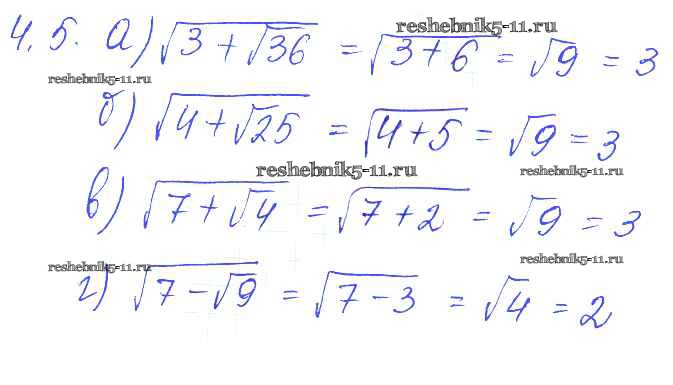 reshebnik5-11.ru
4.5. а) √(3 + √36) = √(3 + 6) = √9 = 3
reshebnik5-11.ru
б) √(4 + √25) = √(4 + 5) = √9 = 3
reshebnik5-11.ru reshebnik5-11.ru
в) √(7 + √4) = √(7 + 2) = √9 = 3
reshebnik5-11.ru reshebnik5-11.ru
г) √(7 − √9) = √(7 − 3) = √4 = 2